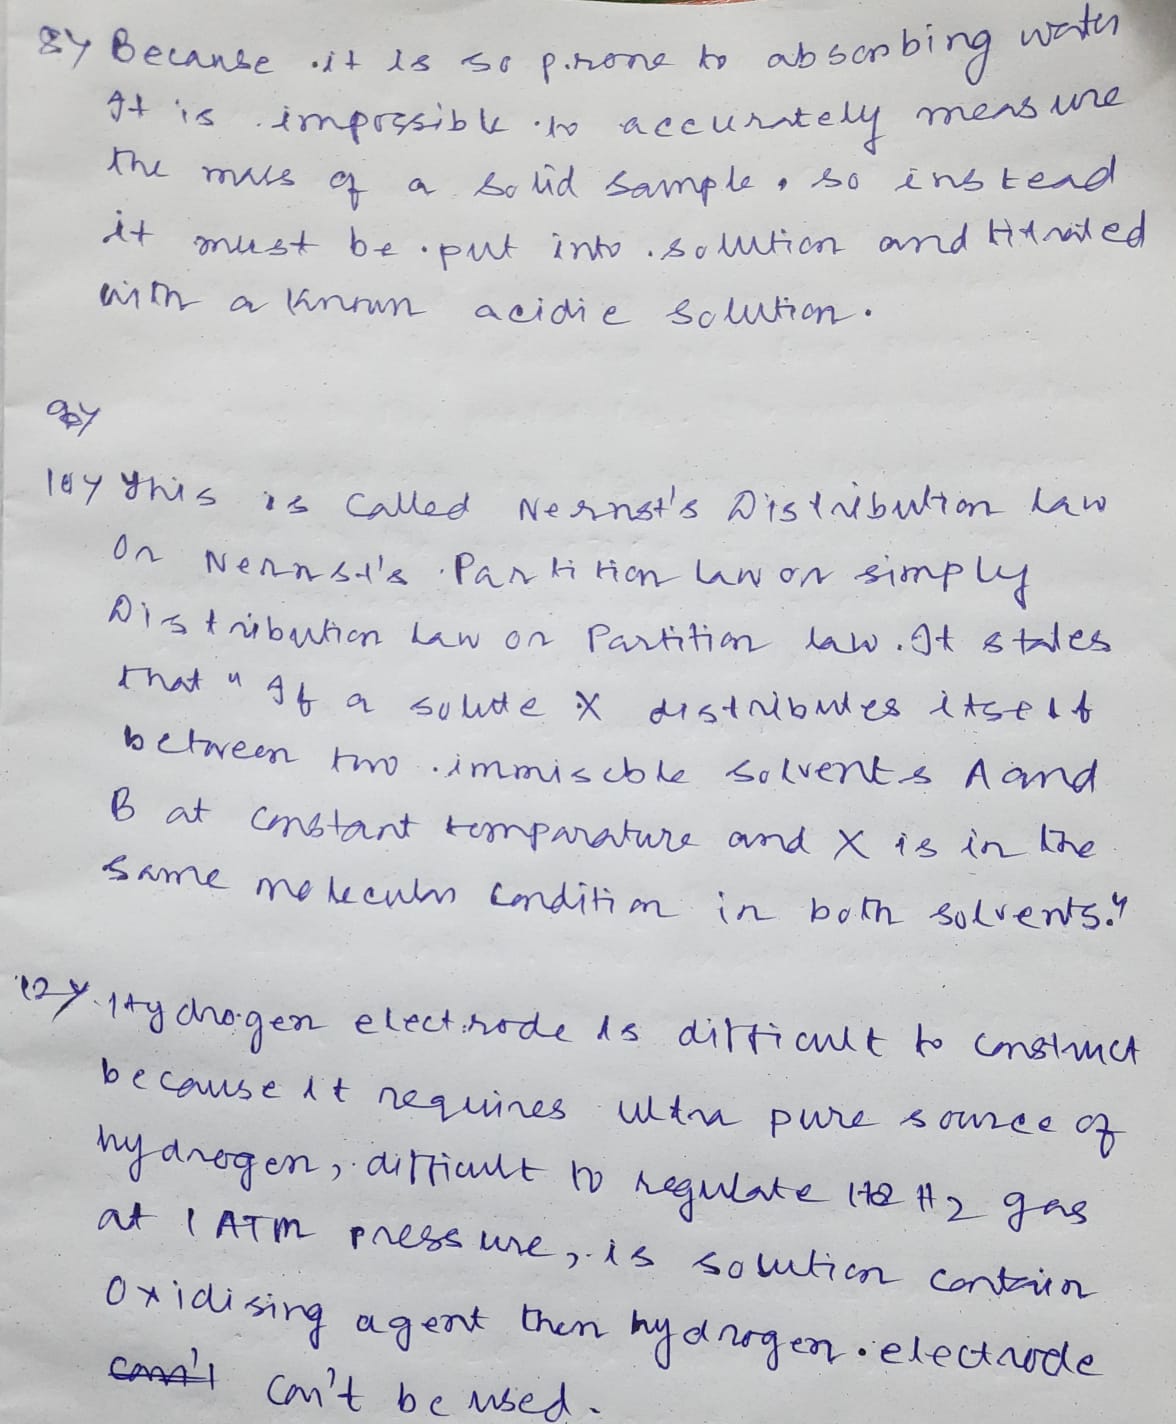 8) Because it is so prone to absorbing water
It is impossible to accurately measure
the mass of a solid sample, so instead
it must be put into solution and titrated
with a known acidic solution.
9)
10) This is called Nernst's Distribution law
Or Nernst's Partition law or simply
Distribution Law or Partition law. It states
that " If a solute X distributes itself
between two immiscble solvents A and
B at constant temparature and X is in the
same molecular condition in both solvents."
12) Hydrogen electrode is difficult to construct
because it requires ultra pure source of
hydrogen, difficult to regulate H2 H2 gas
at 1 ATM pressure, is solution contain
Oxidising agent then hydrogen electrode
can't can't be used.